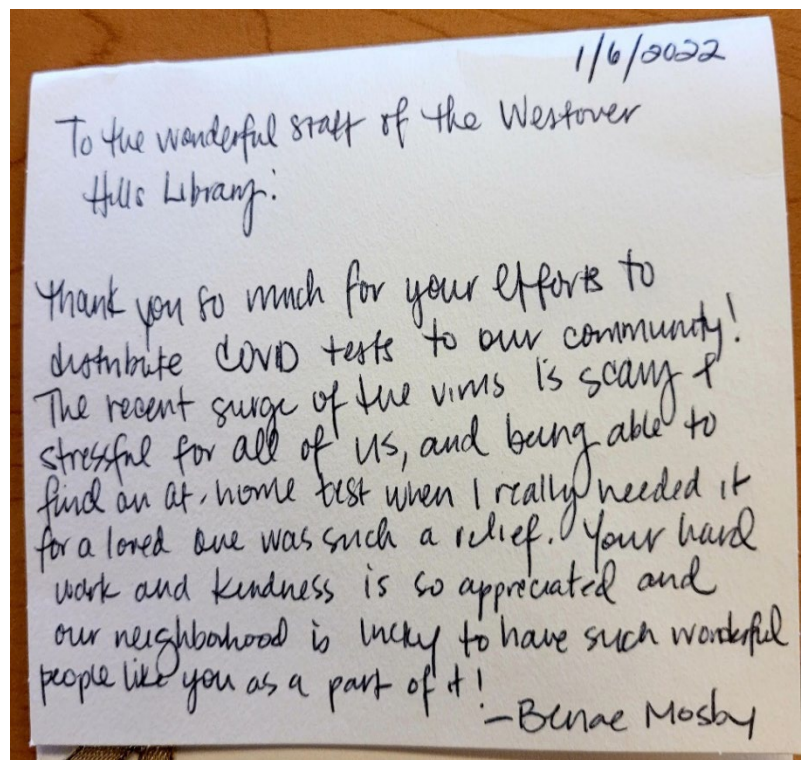 1/6/2022
To the wonderful staff of the Westover
Hills Library:
Thank you so much for your efforts to
distribute COVID tests to our community!
The recent surge of the virus is scary &
stressful for all of us, and being able to
find an at-home test when I really needed it
for a loved one was such a relief. Your hard
work and kindness is so appreciated and
our neighborhood is lucky to have such wonderful
people like you as a part of it!
-Benae Mosby